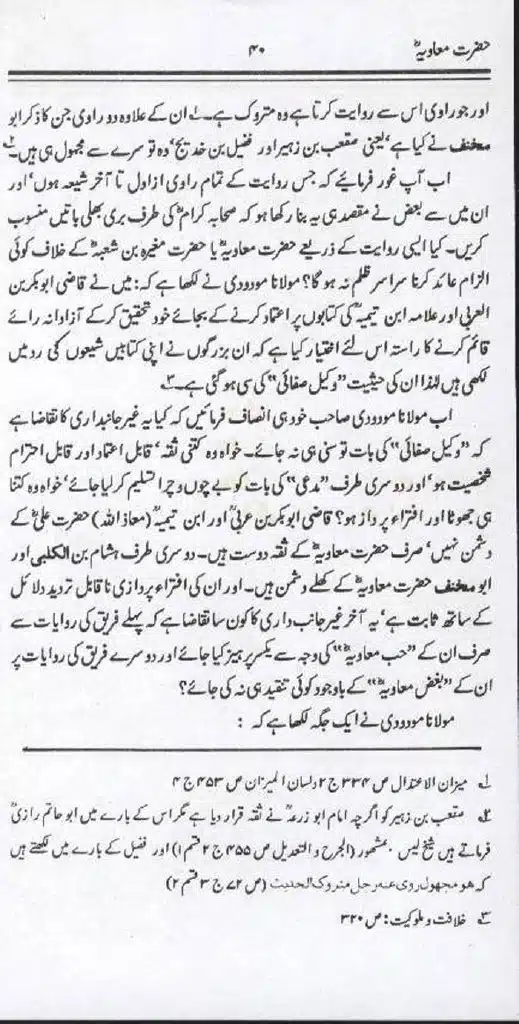 حضرت معاویہؓ
۴۰
اور جو راوی اس سے روایت کرتا ہے وہ متروک ہے۔۱؎ ان کے علاوہ دو راوی جن کا ذکر ابو
مخنف نے کیا ہے، یعنی مقعب بن زہیر اور فضیل بن خدیج، وہ تو سرے سے مجہول ہی ہیں۔۲؎
اب آپ غور فرمائیے کہ جس روایت کے تمام راوی از اول تا آخر شیعہ ہوں، اور
ان میں سے بعض نے مقصد ہی یہ بنا رکھا ہو کہ صحابہ کرامؓ کی طرف بری بھلی باتیں منسوب
کریں۔ کیا ایسی روایت کے ذریعے حضرت معاویہؓ یا حضرت مغیرہ بن شعبہؓ کے خلاف کوئی
الزام عائد کرنا سراسر ظلم نہ ہوگا؟ مولانا مودودی نے لکھا ہے کہ: میں نے قاضی ابوبکر بن
العربی اور علامہ ابن تیمیہؒ کی کتابوں پر اعتماد کرنے کے بجائے خود تحقیق کرکے آزادانہ رائے
قائم کرنے کا راستہ اس لئے اختیار کیا ہے کہ ان بزرگوں نے اپنی کتابیں شیعوں کی رد میں
لکھی ہیں لہٰذا ان کی حیثیت "وکیل صفائی" کی سی ہوگئی ہے۔۳؎
اب مولانا مودودی صاحب خود ہی انصاف فرمائیں کہ کیا یہ غیر جانبداری کا تقاضا ہے
کہ "وکیل صفائی" کی بات تو سنی ہی نہ جائے۔ خواہ وہ کتنی ثقہ، قابل اعتماد اور قابل احترام
شخصیت ہو، اور دوسری طرف "مدعی" کی بات کو بے چوں و چرا تسلیم کرلیا جائے، خواہ وہ کتنا
ہی جھوٹا اور افتراء پرداز ہو؟ قاضی ابوبکر بن عربیؒ اور ابن تیمیہؒ (معاذ اللہ) حضرت علیؓ کے
دشمن نہیں، صرف حضرت معاویہؓ کے ثقہ دوست ہیں۔ دوسری طرف ہشام بن الکلبی اور
ابو مخنف حضرت معاویہؓ کے کھلے دشمن ہیں۔ اور ان کی افتراء پردازی ناقابل تردید دلائل
کے ساتھ ثابت ہے، یہ آخر غیر جانب داری کا کون سا تقاضا ہے کہ پہلے فریق کی روایات سے
صرف ان کے "حب معاویہؓ" کی وجہ سے یکسر پرہیز کیا جائے اور دوسرے فریق کی روایات پر
ان کے "بغض معاویہؓ" کے باوجود کوئی تنقید ہی نہ کی جائے؟
مولانا مودودی نے ایک جگہ لکھا ہے کہ :
۱؎ میزان الاعتدال ص ۳۳۴ ج ۲ ولسان المیزان ص ۴۵۳ ج ۴
۲؎ مقعب بن زہیر کو اگرچہ امام ابو زرعہؒ نے ثقہ قرار دیا ہے مگر اس کے بارے میں ابو حاتم رازیؒ
فرماتے ہیں شیخ لیس بمشہور (الجرح والتعدیل ص ۴۵۵ ج ۲ قسم ۱) اور فضیل کے بارے میں لکھتے ہیں
کہ ھو مجھول روی عنہ رجل متروک الحدیث (ص ۷۲ ج ۳ قسم ۲)
۳؎ خلافت و ملوکیت: ص ۳۲۰